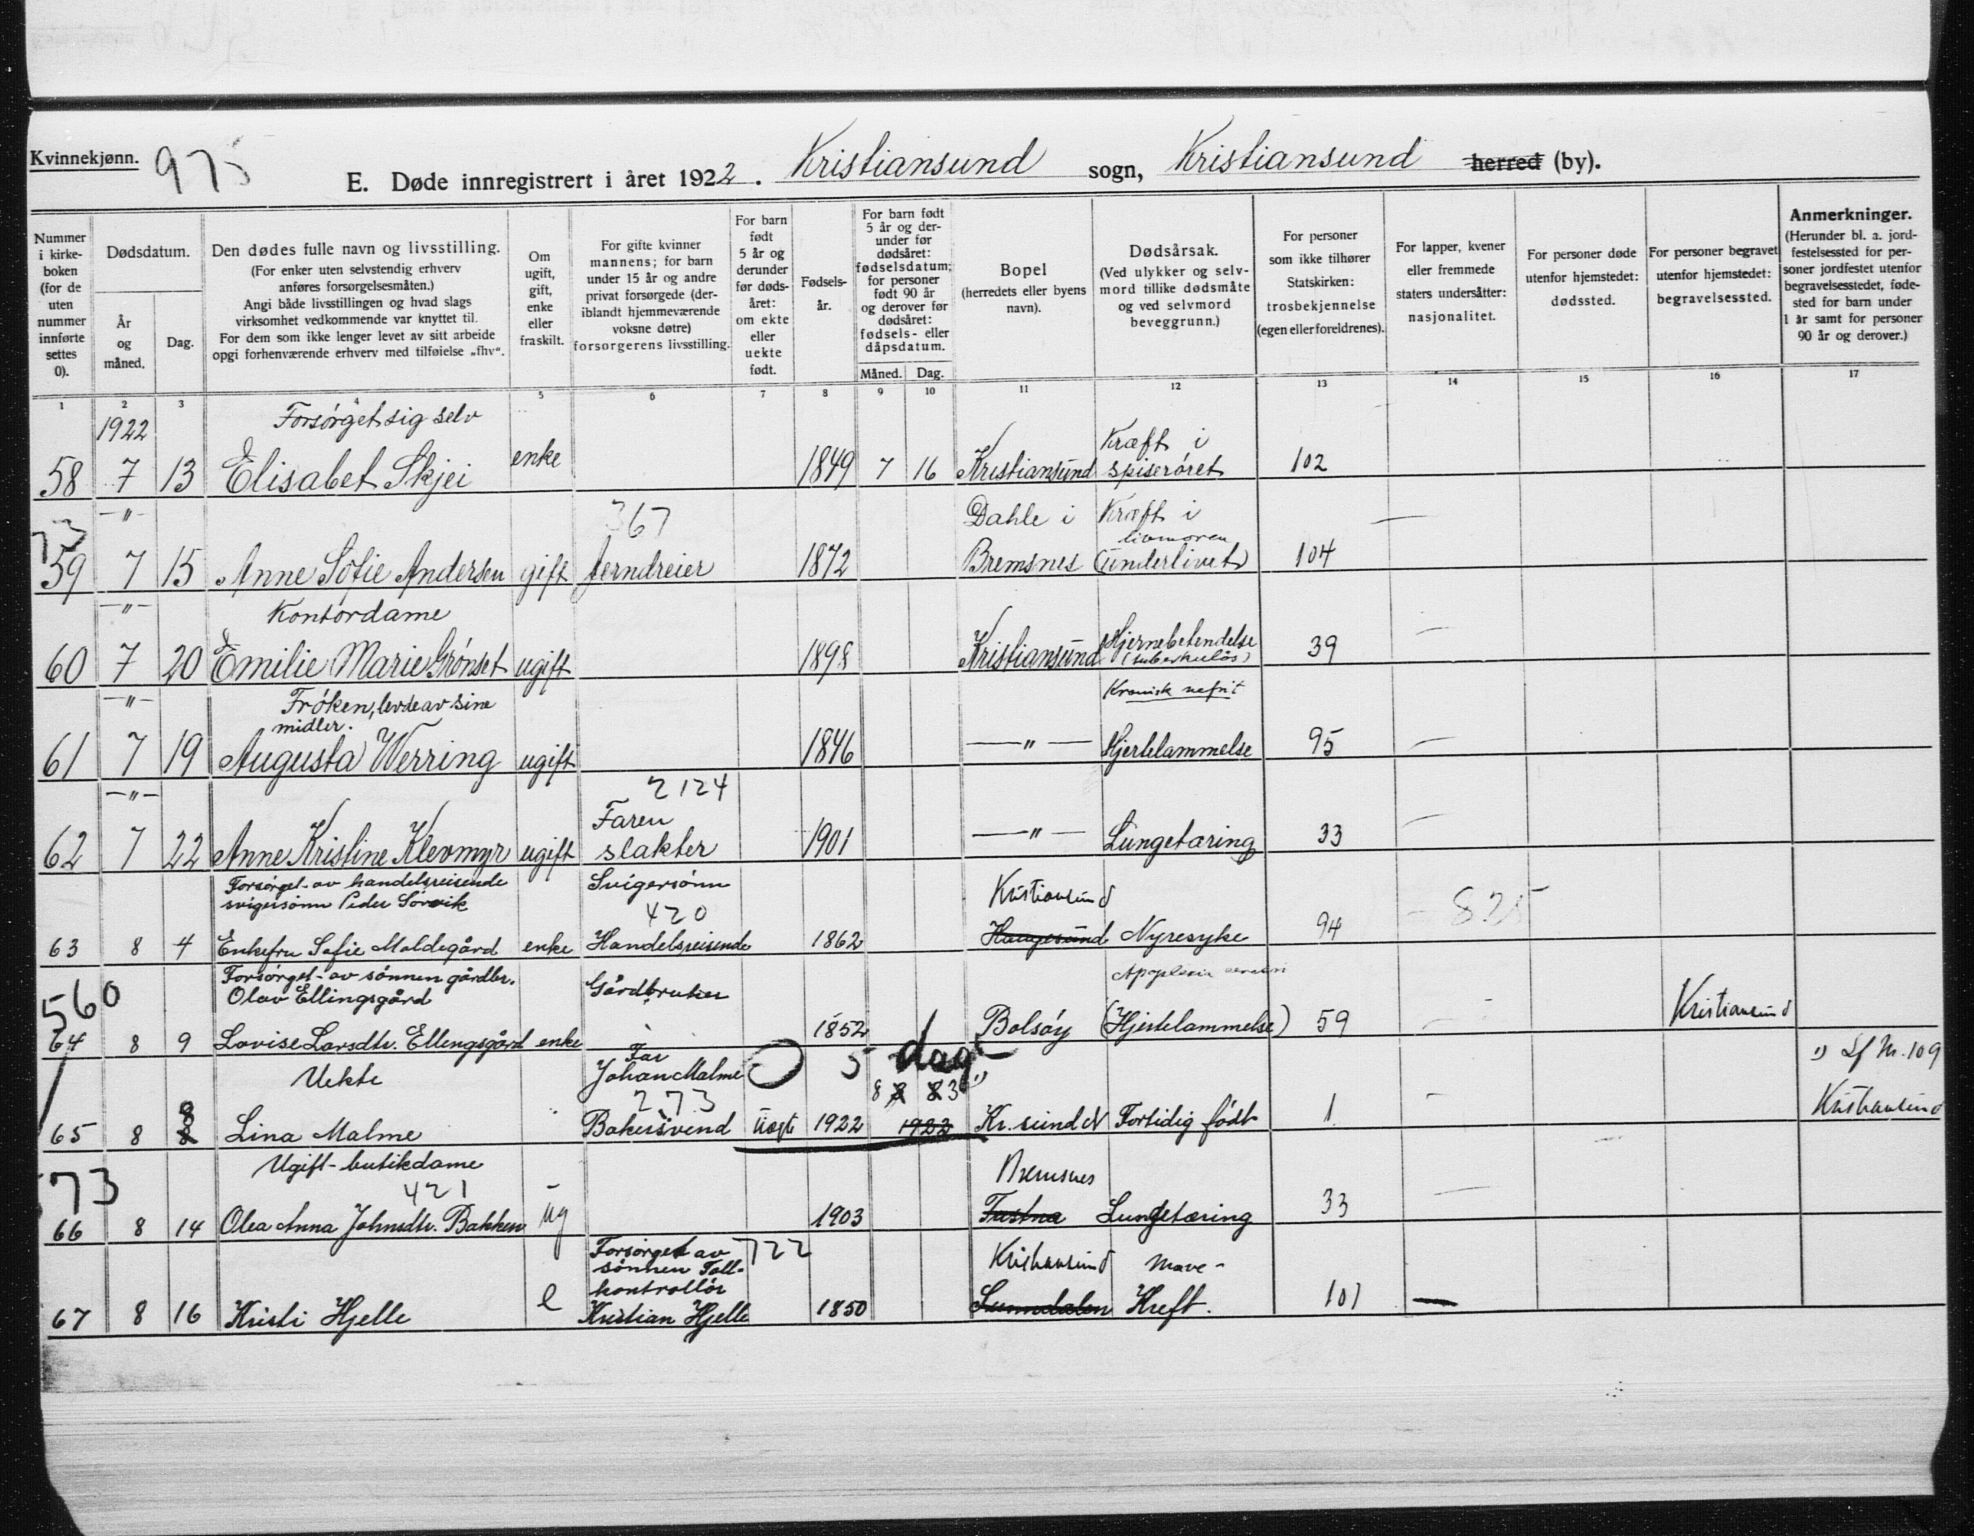 Kvinnekjønn. 975
E. Døde innregistrert i året 1922. Kristiansund sogn, Kristiansund herred (by).
Nummer i kirkeboken (for de uten nummer innførte settes 0).
Dødsdatum.
År og måned.
Dag.
Den dødes fulle navn og livsstilling.
(For enker uten selvstendig erhverv anføres forsørgelsesmåten.)
Angi både livsstillingen og hvad slags virksomhet vedkommende var knyttet til.
For dem som ikke lenger levet av sitt arbeide opgi forhenværende erhverv med tilføielse „fhv“.
Om ugift, gift, enke eller fraskilt.
For gifte kvinner mannens; for barn under 15 år og andre privat forsørgede (deriblandt hjemmeværende voksne døtre) forsørgerens livsstilling.
For barn født 5 år og derunder før dødsåret: om ekte eller uekte født.
Fødselsår.
For barn født 5 år og derunder før dødsåret: fødselsdatum; for personer født 90 år og derover før dødsåret: fødsels- eller dåpsdatum.
Måned. Dag.
Bopel
(herredets eller byens navn).
Dødsårsak.
(Ved ulykker og selvmord tillike dødsmåte og ved selvmord beveggrunn.)
For personer som ikke tilhører Statskirken: trosbekjennelse (egen eller foreldrenes).
For lapper, kvener eller fremmede staters undersåtter: nasjonalitet.
For personer døde utenfor hjemstedet: dødssted.
For personer begravet utenfor hjemstedet: begravelsessted.
Anmerkninger.
(Herunder bl. a. jordfestelsessted for personer jordfestet utenfor begravelsesstedet, fødested for barn under 1 år samt for personer 90 år og derover.)
1 2 3 4 5 6 7 8 9 10 11 12 13 14 15 16 17
1922 Forsørget sig selv Kræft i
58 7 13 Elisabet Skjei enke 1849 7 16 Kristiansund spiserøret 102
—"— 367 Dahle i Kræft i —
73 livmoren
59 7 15 Anne Sofie Andersen gift Jerndreier 1872 Bremsnes (underlivet) 104
—"— Kontordame
60 7 20 Emilie Marie Grønset ugift 1898 Kristiansund Hjernebetendelse (tuberkuløs) 39 —
—"— Frøken, levde av sine midler. Kronisk nefrit
61 7 19 Augusta Werring ugift 1846 —"— Hjertelammelse 95 —
—"— 2124
Faren
62 7 22 Anne Kristine Klevmyr ugift slakter 1901 —"— Lungetæring 33 —
Forsørget av handelsreisende Svigersønn Kristiansund
svigersønn Peder Sørvik 420 825
63 8 4 Enkefru Sofie Moldegård enke Handelsreisende 1862 Haugesund Nyresyke 94 —
Forsørget av sønnen gårdbr. Apoplexia cerebri
560 Olav Ellingsgård Gårdbruker Kristiansund
64 8 9 Lovise Larsdtr. Ellingsgård enke 1852 Bolsøy (Hjertelammelse) 59 —
Far 5 dag ") Lf Nr. 109
Uekte Johan Malme 0 8 8 83 ")
273 Kristiansund
65 8 8 8 Lina Malme Bakersvend Uegte 1922 1922 Kr.sund N Fortidig født 1 —
73 Ugift - butikdame Bremsnes
421
66 8 14 Olea Anna Johnsdtr. Bakken ug 1903 Tustna Lungetæring 33 —
Forsørget av 722 Kristiansund Mave-
sønnen Toll-
kontrollør
67 8 16 Kristi Hjelle e Kristian Hjelle 1850 Sunndalen Kreft. 101 —